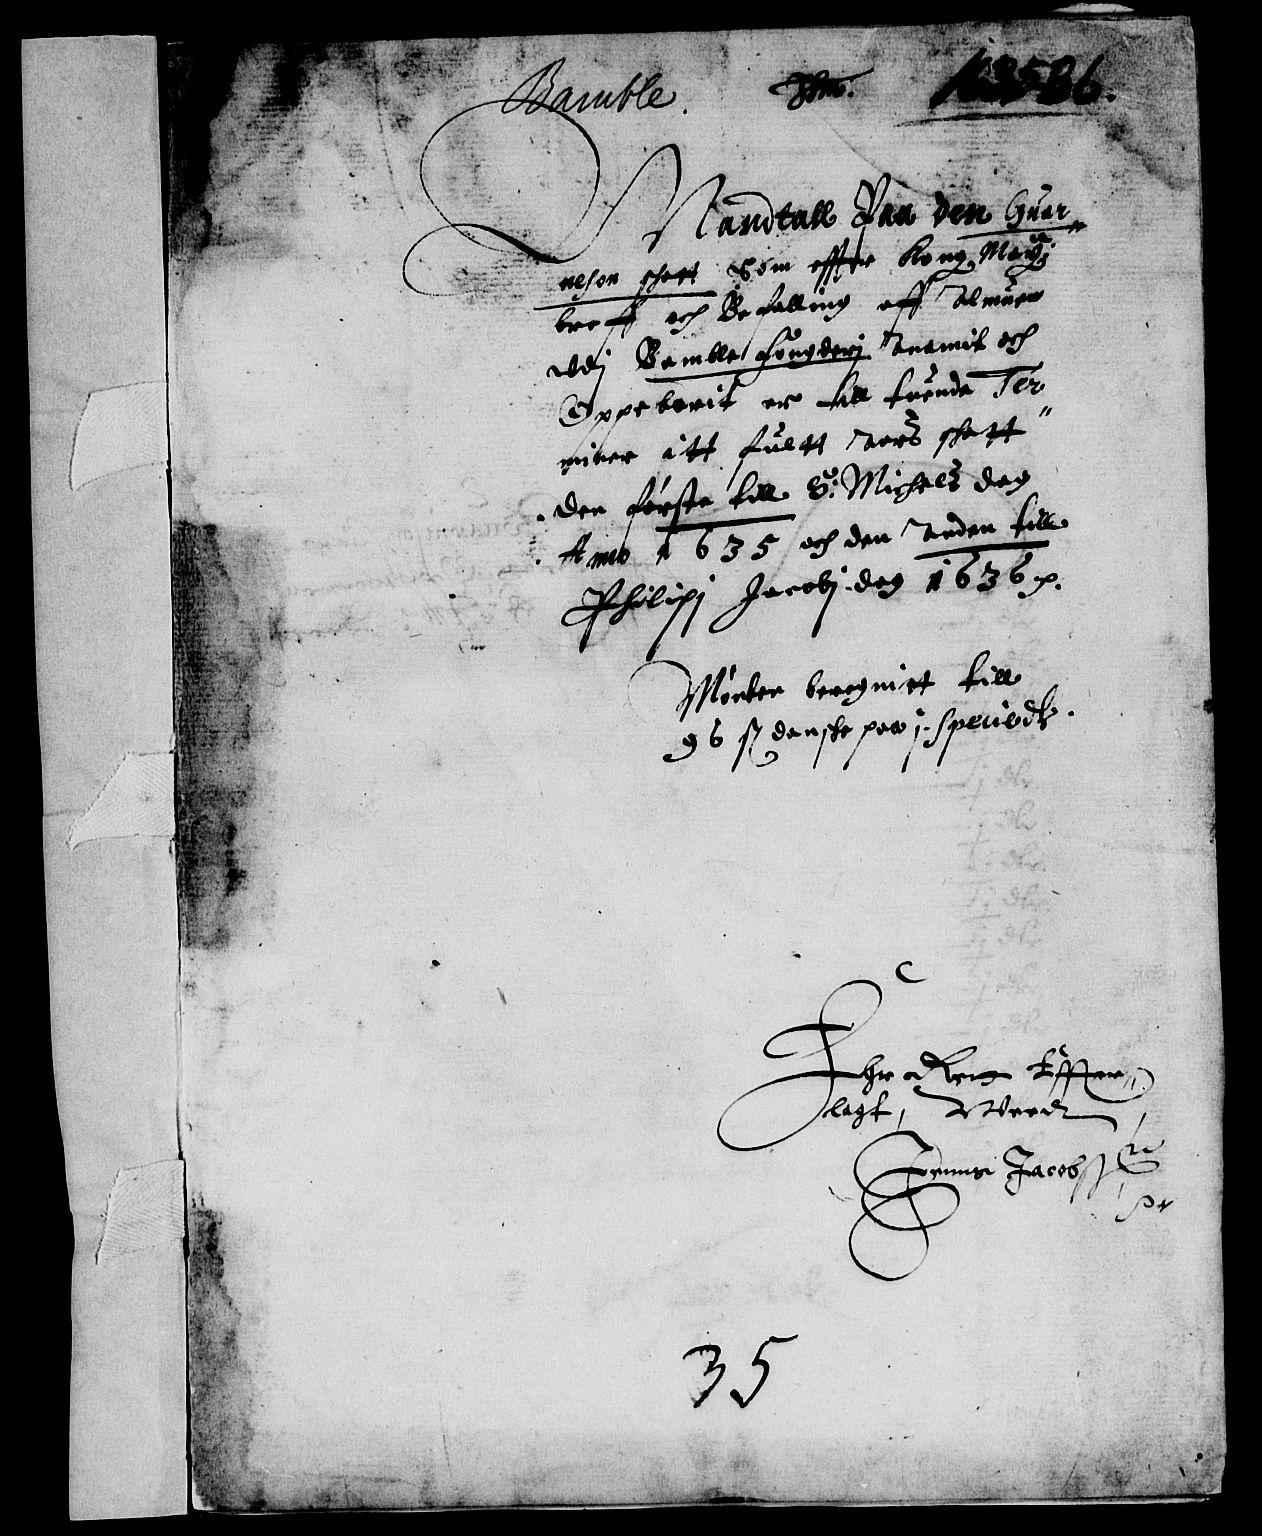 Bamble.
Mandtall Paa den Guar
nison schatt Som effter Kong. Maytz
breff och Befalling aff Almuen
Udj Bamble fougderj Anamit och
Oppeborit er till tuende Ter
miner itt fultt Aars schatt
den første till S: Michels dag
Anno 1635 och den Anden till
Philipj Jacobj dag 1636 p.
Mønten beregnit till
96 ß danske paa j. Speciedlr.
Ehr Rett Effter
lagt, Meed
Jacobss
35